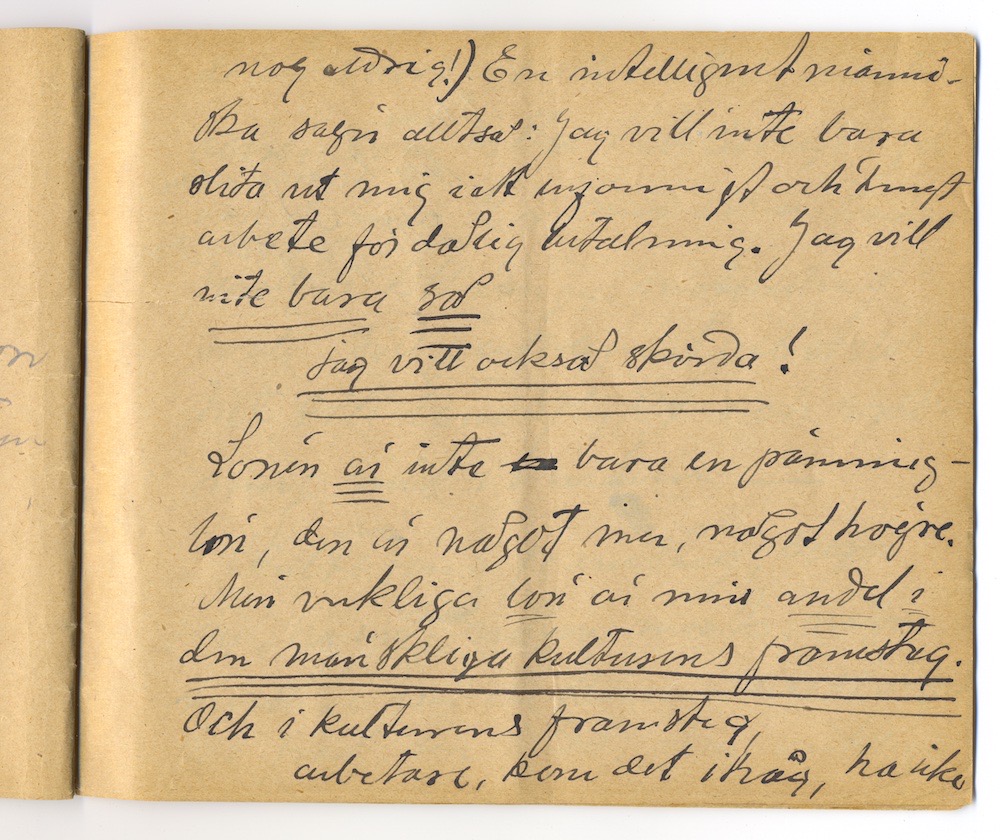 nog aldrig!) En intelligent männi-
ska säger alltså: Jag vill inte bara
slita ut mig i ett enformigt och tungt
arbete för dålig betalning. Jag vill
inte bara så
jag vill också skörda!
Lönen är inte bara en pänning-
lön, den är något mer, något högre.
Min verkliga lön är min andel i
den mänskliga kulturens framsteg.
Och i kulturens framsteg,
arbetare, kom det ihåg, ha icke